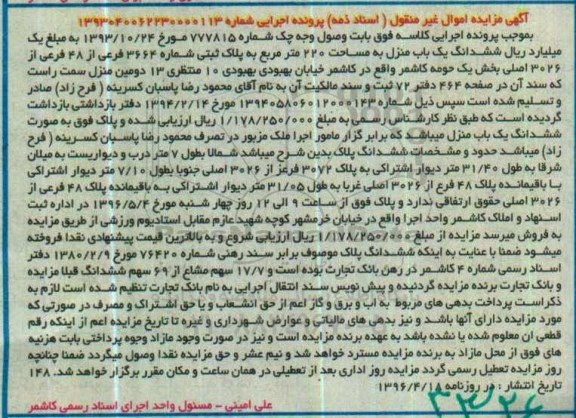 آگهی مزایده اموال غیر منقول ( اسناد ذمه) پرونده اجرایی شماره ۱۳۹۳۰۴۰۰۶۲۲۳۰۰۰۰۱۱۳
بموجب پرونده اجرایی کلاسه فوق بابت وصول وجه چک شماره ۷۷۷۸۱۵ مورخ ۱۳۹۳/۱۰/۲۴ به مبلغ یک
میلیارد ریال ششدانگ یک باب منزل به مساحت ۲۲۰ متر مربع به پلاک ثبتی شماره ۳۶۶۴ فرعی از ۴۸ فرعی از
۳۰۲۶ اصلی بخش یک حومه کاشمر واقع در کاشمر خیابان بهبودی بهبودی ۱۰ منتظری ۱۳ دومین منزل سمت راست
که سند آن در صفحه ۴۶۴ دفتر ۷۲ ثبت و سند مالکیت آن به نام آقای محمود رضا پاسبان کسرینه ( فرح زاد) صادر
و تسلیم شده است سپس ذیل شماره ۱۳۹۴۰۵۸۰۶۰۱۲۰۰۰۱۴۳ مورخ ۱۳۹۴/۲/۱۴ دفتر بازداشتی بازداشت
گردیده است که طبق نظر کارشناس رسمی به مبلغ ۱/۱۷۸/۲۵۰/۰۰۰ ریال ارزیابی شده و پلاک فوق به صورت
ششدانگ یک باب منزل میباشد که برابر گزار مامور اجرا ملک مزبور در تصرف محمود رضا پاسبان کسرینه ( فرح
زاد) میباشد حدود و مشخصات ششدانگ پلاک بدین شرح میباشد شمالا بطول ۷ متر درب و دیواریست به میلان
شرقا به طول ۳۱/۴۰ متر دیوار اشتراکی به پلاک ۳۰۷۲ فرعز از ۳۰۲۶ اصلی جنوبا بطول ۷/۱۰ متر دیوار اشتراکی
با باقیمانده پلاک ۴۸ فرع از ۳۰۲۶ اصلی غربا به طول ۳۱/۰۵ متر دیوار اشتراکی به باقیمانده پلاک ۴۸ فرعی از
۳۰۲۶ اصلی حقوق ارتفاقی ندارد و پلاک فوق از ساعت ۹ الی ۱۲ روز چهار شنبه مورخ ۱۳۹۶/۵/۴ در اداره ثبت
اسنهاد و املاک کاشمر واحد اجرا واقع در خیابان خرمشهر کوچه شهید عازم مقابل استادیوم ورزشی از طریق مزایده
به فروش میرسد مزایده از مبلغ ۱/۱۷۸/۲۵۰/۰۰۰ ریال ارزیابی شروع و به بالاترین قیمت پیشنهادی نقدا فروخته
میشود ضمنا با عنایت به اینکه ششدانگ پلاک موصوف برابر سند رهنی شماره ۷۶۴۲۰ مورخ ۱۳۸۰/۲/۹ دفتر
اسناد رسمی شماره ۴ کاشمر در رهن بانک تجارت بوده است و ۱۷/۷ سهم مشاع از ۶۹ سهم ششدانگ قبلا مزایده
و بانک تجارت برنده مزایده گردنیده و پیش نویس سند انتقال اجرایی به نام بانک تجارت تنظیم شده است لازم به
ذکراست پرداخت بدهی های مربوط به اب و برق و گاز اعم از حق انشعاب و یا حق اشتراک و مصرف در صورتی که
مورد مزایده دارای آنها باشد و نیز بدهی های مالیاتی و عوارض شهرداری و غیره تا تاریخ مزایده اعم از اینکه رقم
قطعی ان معلوم شده یا نشده باشد به عهده برنده مزایده است و نیز در صورت وجود مازاد وجوه پرداختی بابت هزنیه
های فوق از محل مازاد به برنده مزایده مسترد خواهد شد و نیم عشر و حق مزایده نقدا وصول میگردد ضمنا چنانچه
روز مزایده تعطیل رسمی گردد مزایده روز اداری بعد از تعطیلی در همان ساعت و مکان مقرر برگزار خواهد شد. ۱۴۸
تاریخ انتشار : در روزنامه ۱۳۹۶/۴/۱۸
علی امینی - مسئول واحد اجرای اسناد رسمی کاشمر